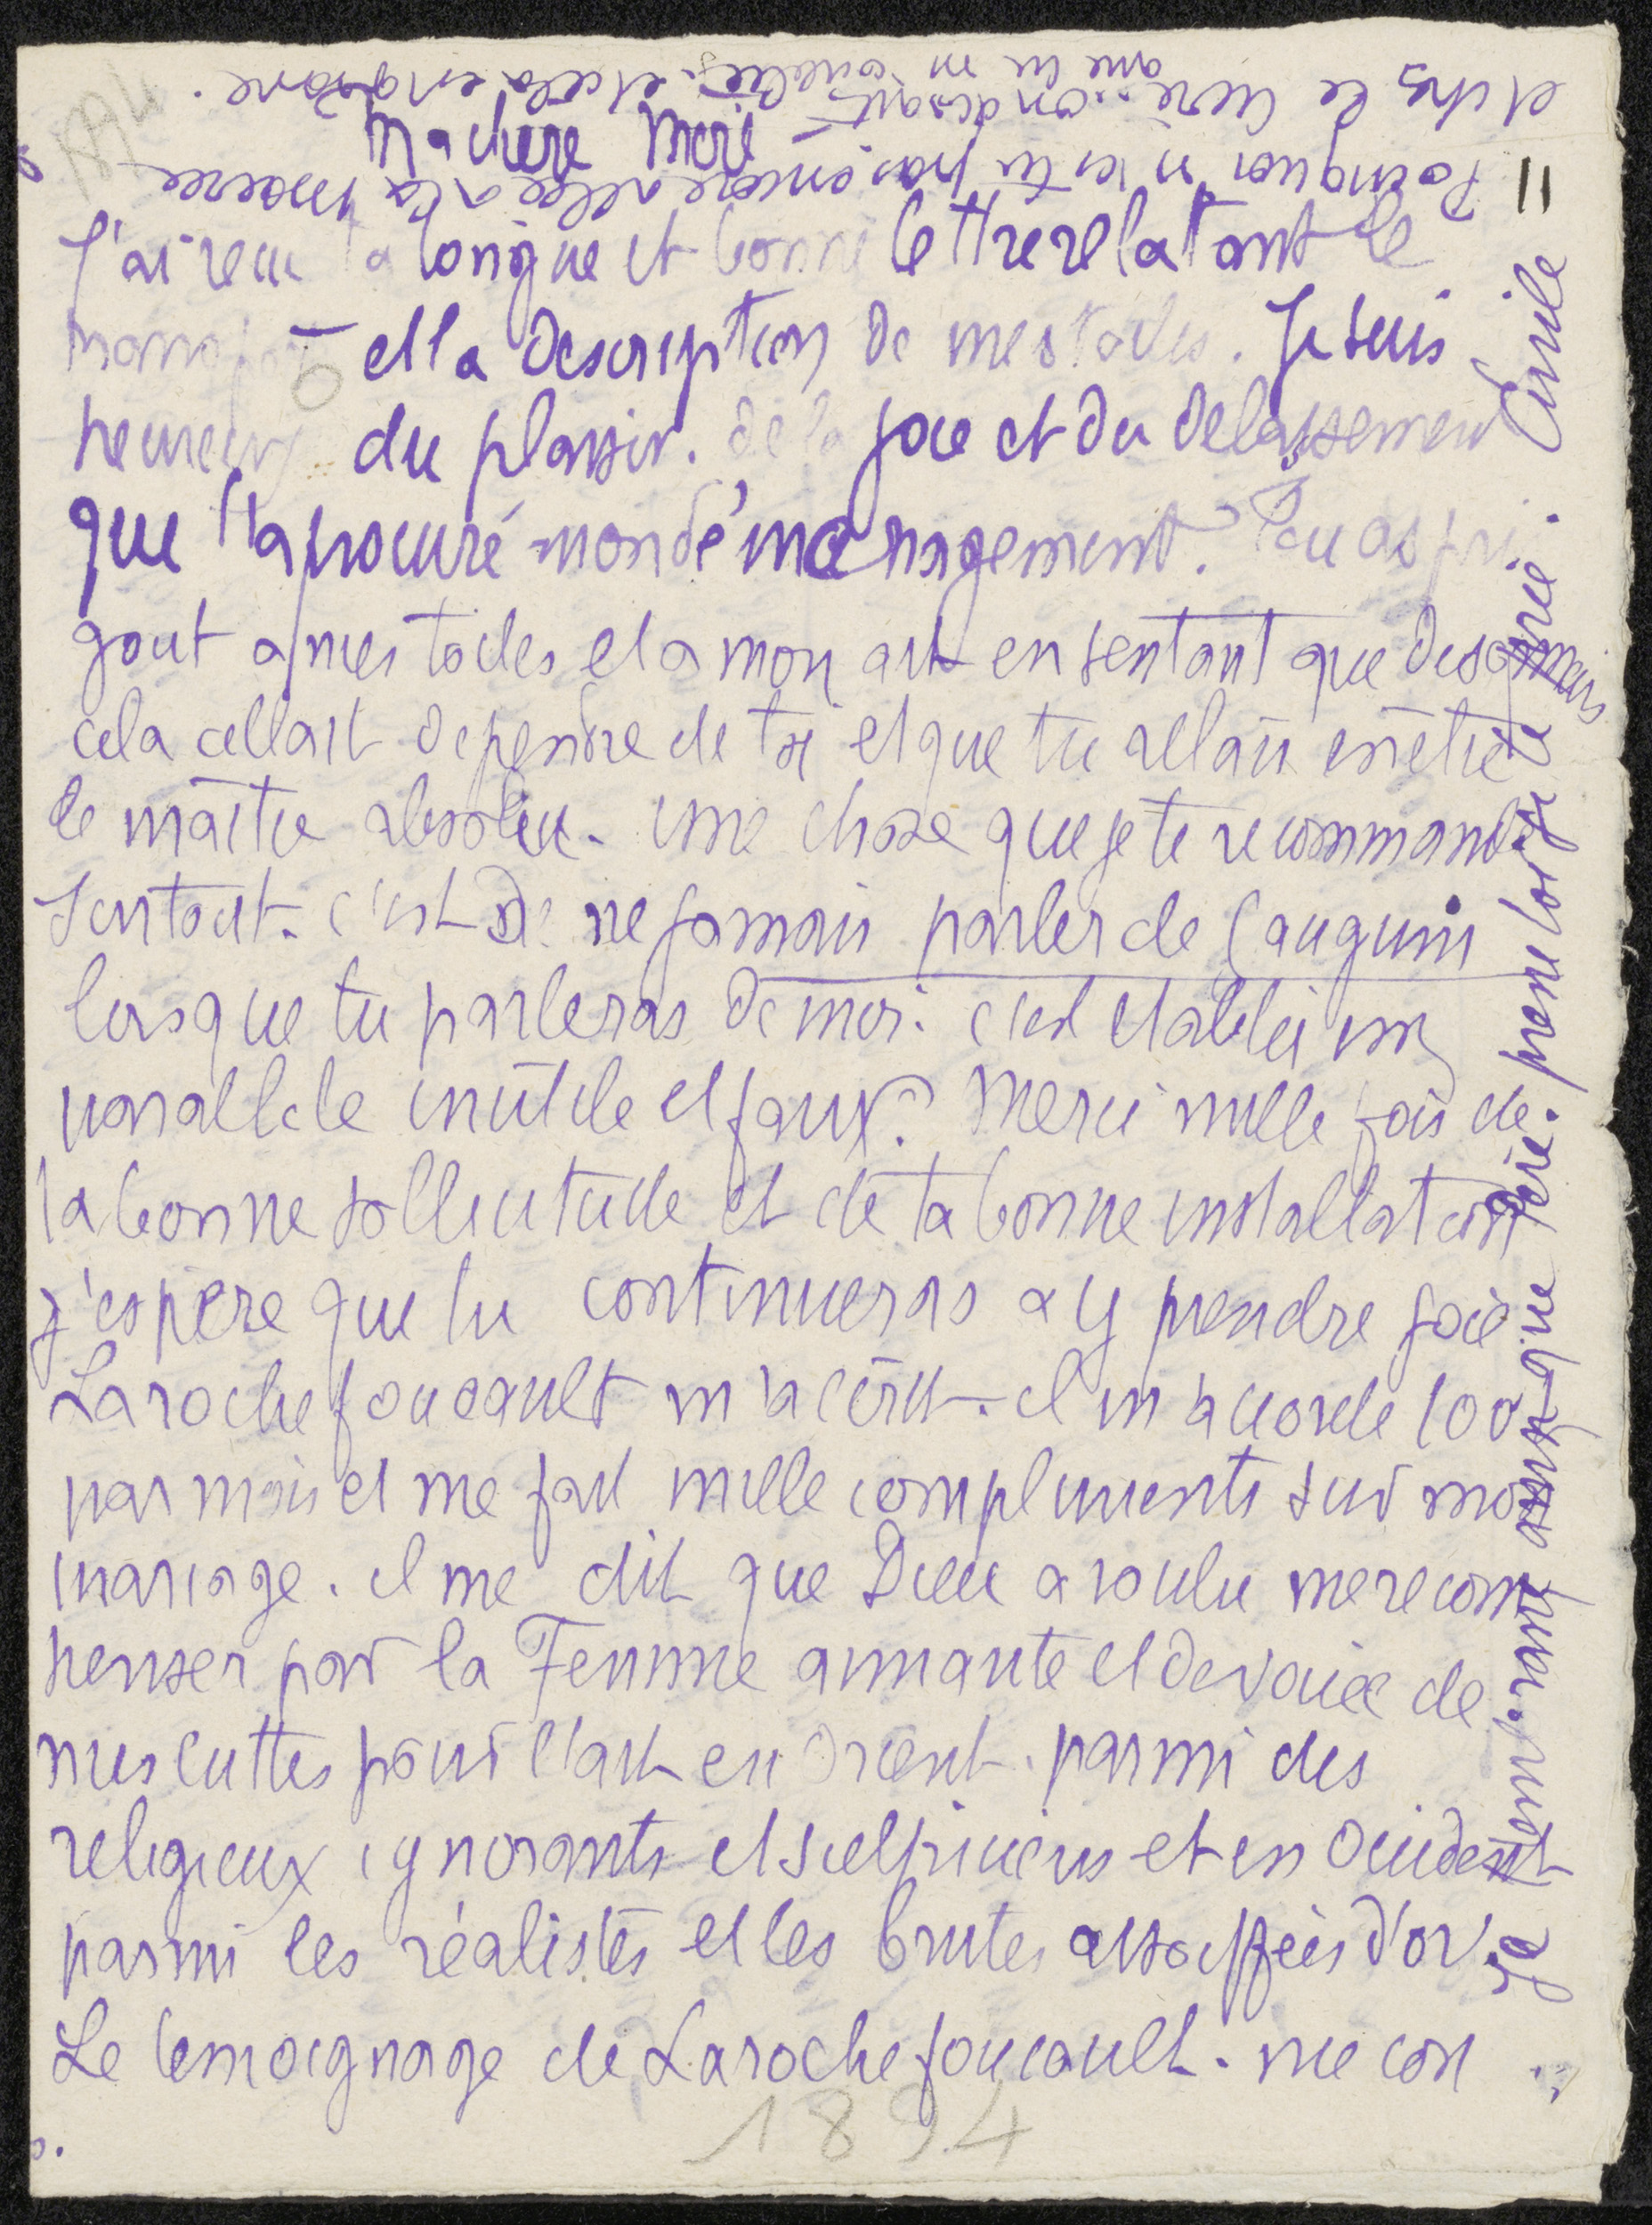 Ma chere Mere
J'ai recu ta longue et bonne lettre relatant le
et la description de mes toiles. Je suis
heureux du plaisir. de la joie et du delassement
que t'a procuré mon démenagement. Tu as pris
gout a mes toiles et a mon art en sentant que desormais
cela allait dependre de toi et que tu allais en être
le maître absolu. une chose que je te recommande
surtout. c'est de ne jamais parler de Gauguin
lorsque tu parleras de moi. c'est etablir un
parallele inutile et faux. Merci mille fois de
ta bonne sollicitude et de ta bonne installation
j'espère que tu continueras a y prendre joie
Larochefoucault m'a écrit. il m'accorde 100
par mois et me fait mille compliments sur mon
mariage. il me dit que Dieu a voulu me recom
penser par la Femme aimante et devouée de
mes luttes pour l'art en Orient. parmi des
religieux ignorants et sulpiciens et en Occident
parmi les réalistes et les brutes assoiffées d'or.
Le temoignage de Larochefoucault. me con
1894
Je t'embrasse ainsi que Père. prene toi je te prie. Emile
Pourquoi n'es tu pas encore allée a la mairie
et chez le Curé. on disait que tu en
1894
11